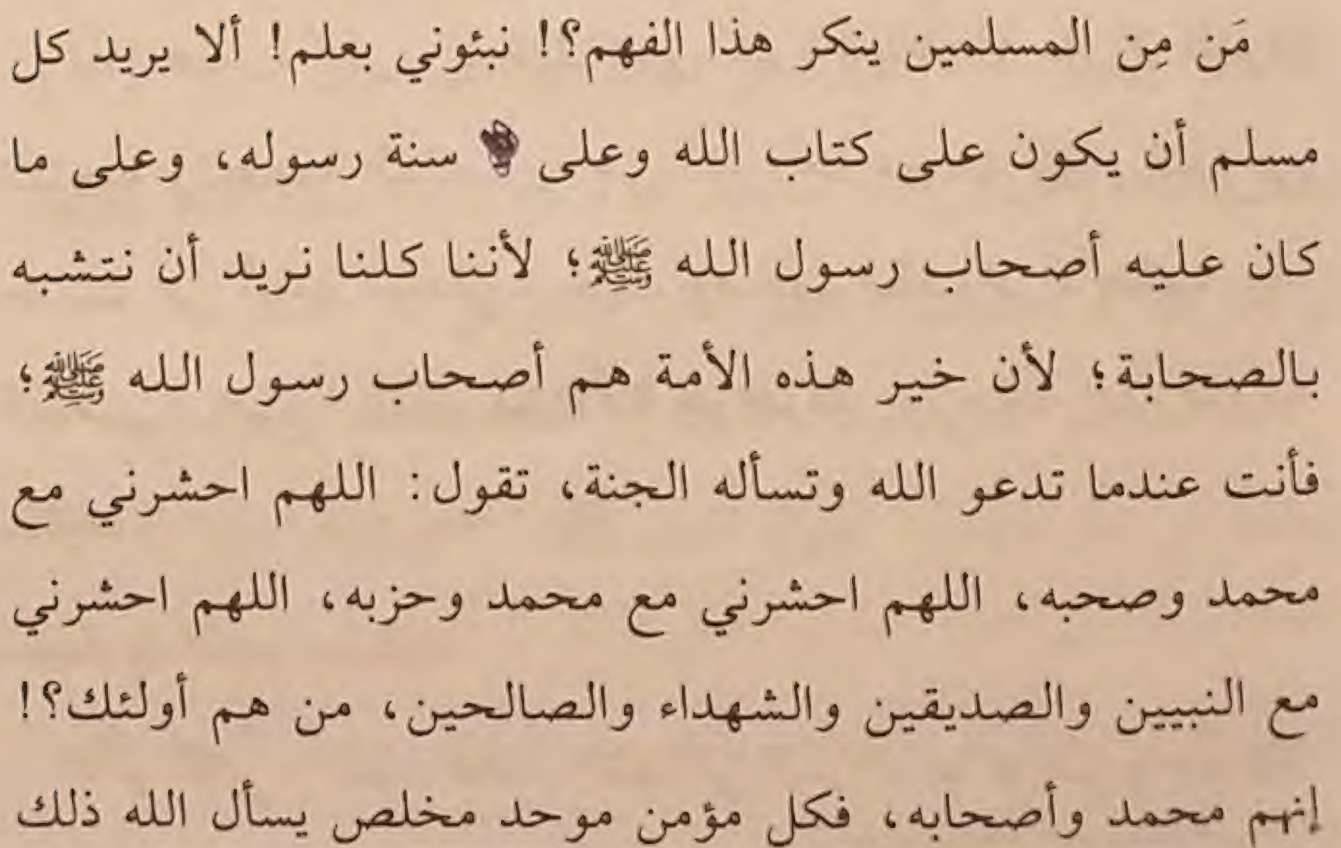 مَن مِن المسلمين ينكر هذا الفهم؟! نبئوني بعلم! ألا يريد كل
مسلم أن يكون على كتاب الله وعلى سنة رسوله، وعلى ما
كان عليه أصحاب رسول الله ﷺ؛ لأننا كلنا نريد أن نتشبه
بالصحابة؛ لأن خير هذه الأمة هم أصحاب رسول الله ﷺ؛
فأنت عندما تدعو الله وتسأله الجنة، تقول: اللهم احشرني مع
محمد وصحبه، اللهم احشرني مع محمد وحزبه، اللهم احشرني
مع النبيين والصديقين والشهداء والصالحين، من هم أولئك؟!
إنهم محمد وأصحابه، فكل مؤمن موحد مخلص يسأل الله ذلك